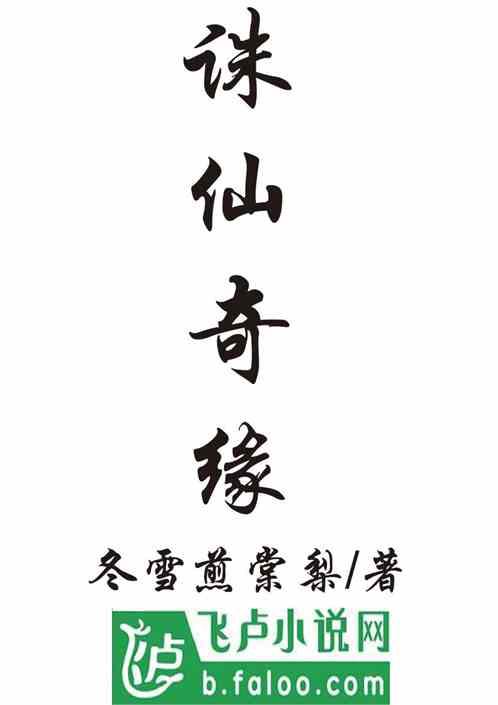 诛仙奇缘
冬雪煎棠梨/著
飞卢小说网
b.faloo.com